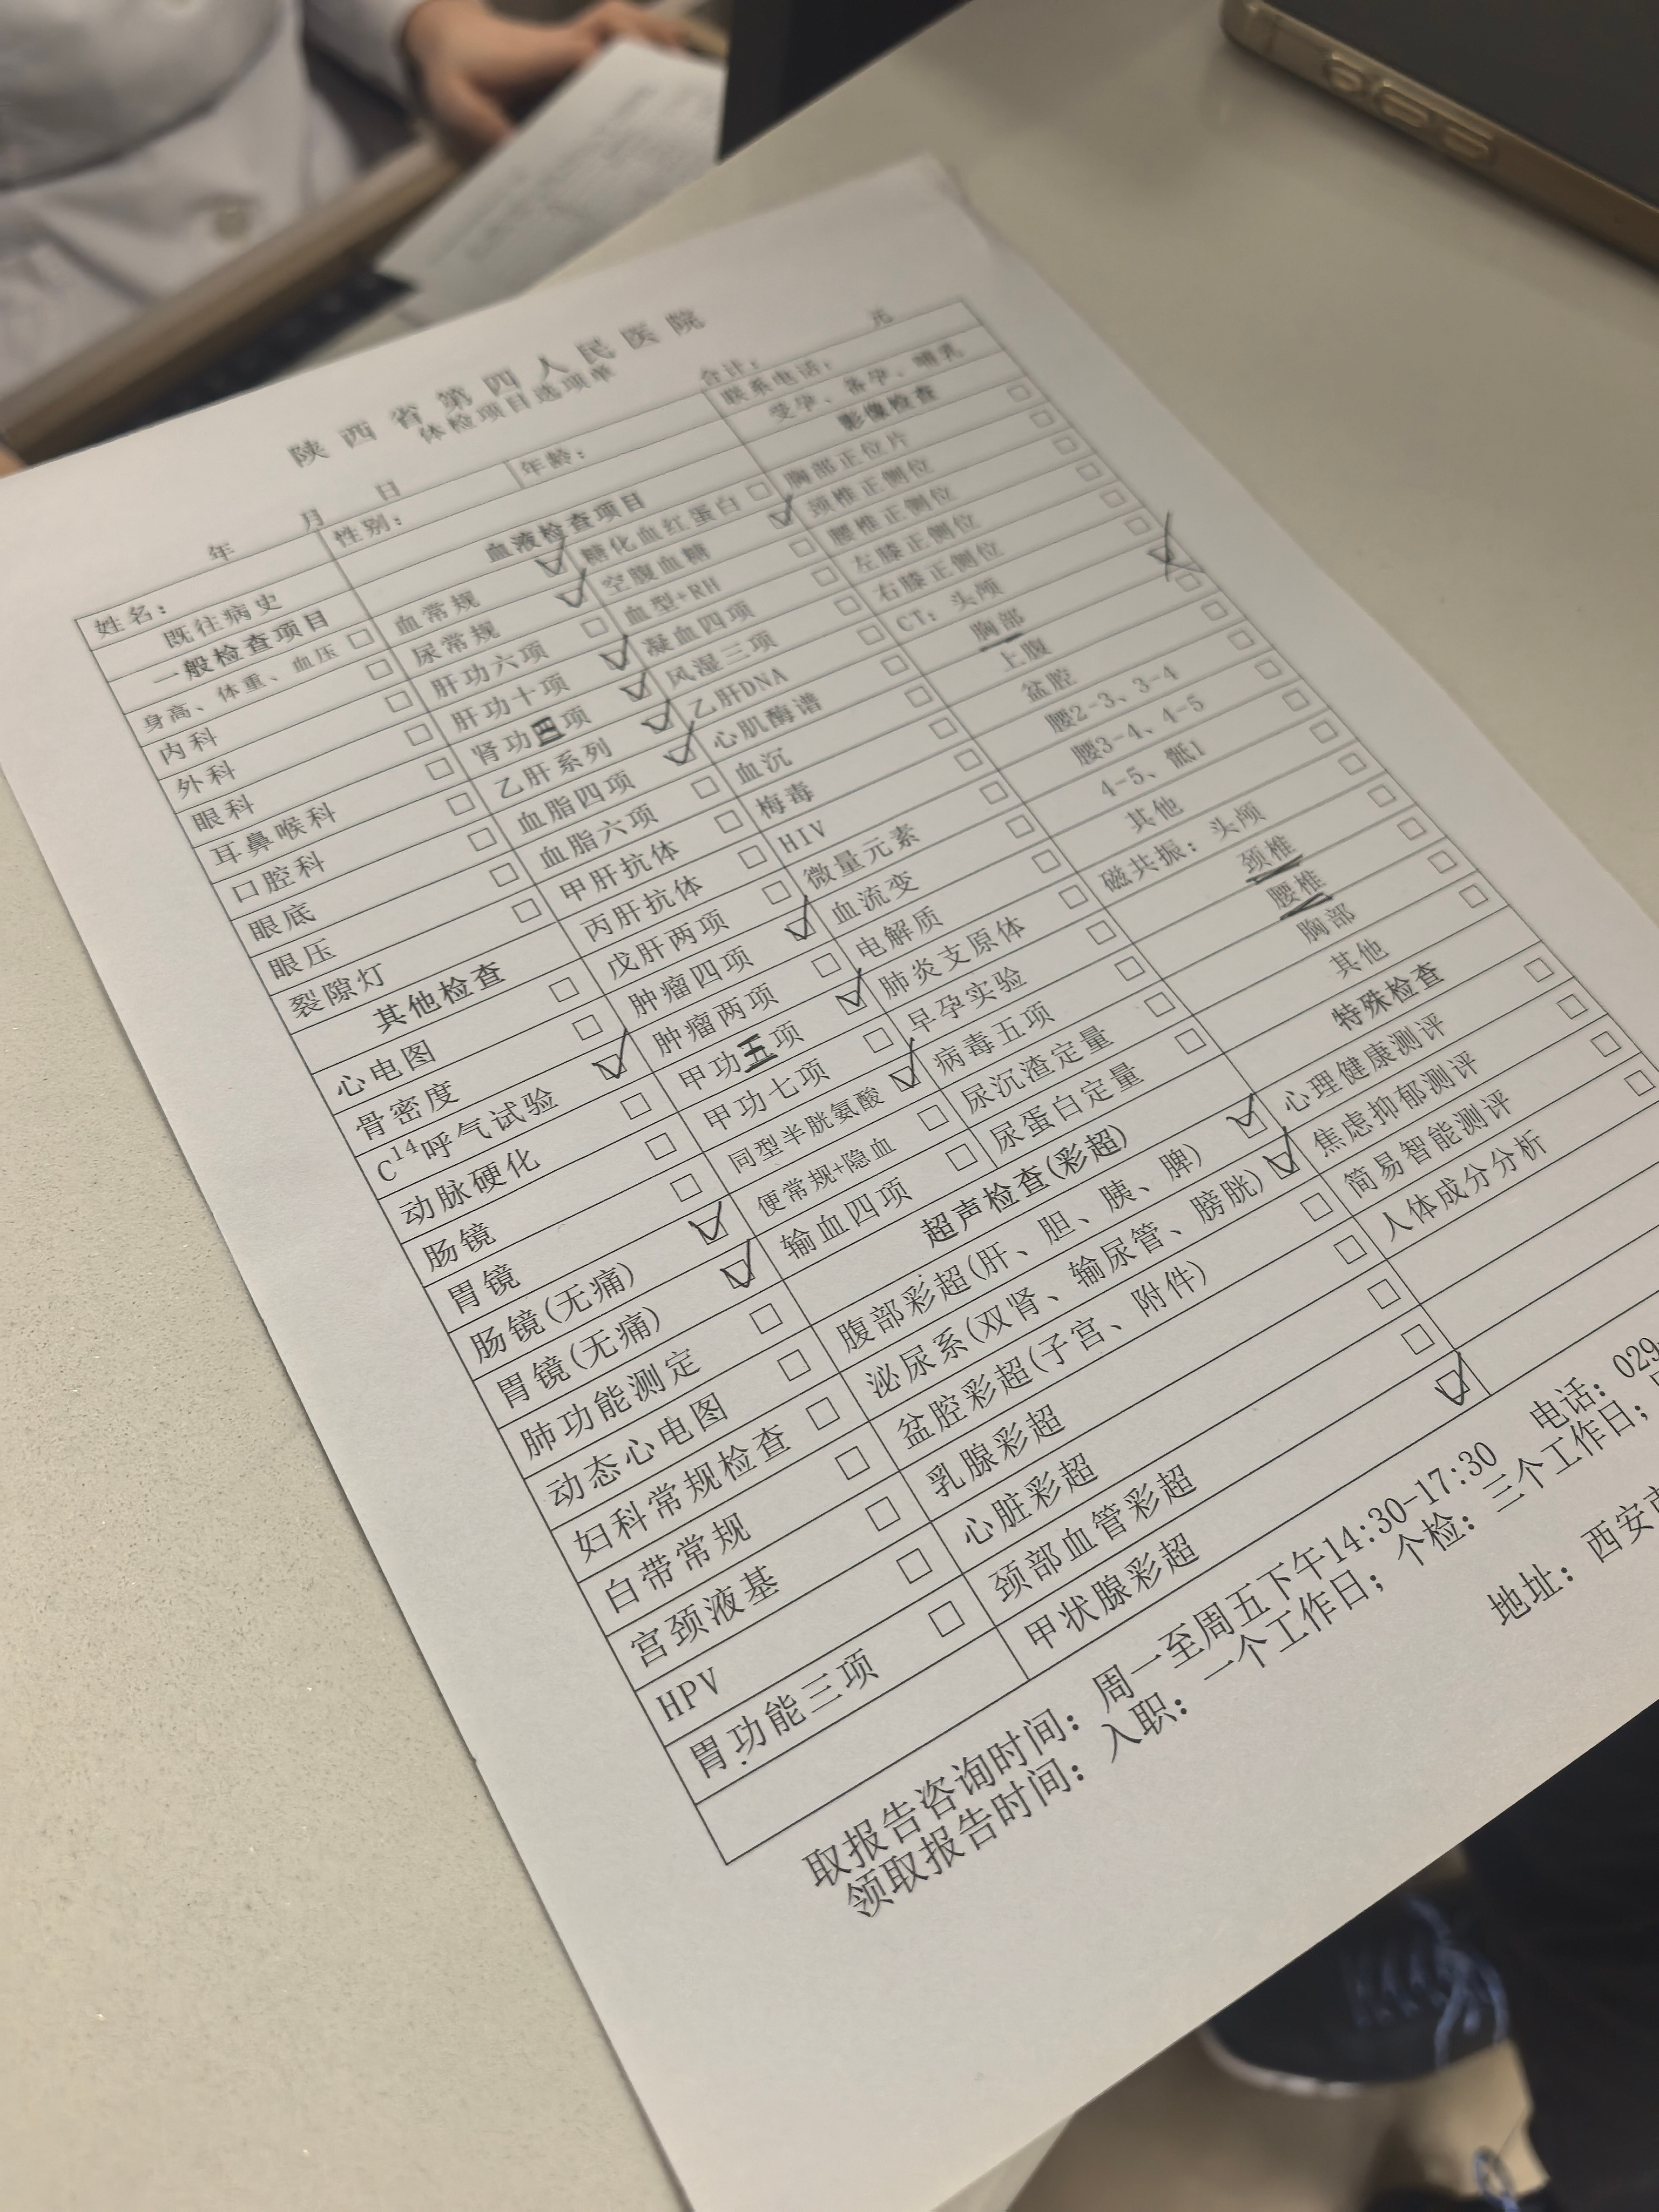 陕西省第四人民医院
体检项目选项单
年 月 日 合计: 元
姓名: 性别: 年龄: 联系电话:
既往病史 受孕、备孕、哺乳
一般检查项目 血液检查项目 影像检查
身高、体重、血压
内科
外科
眼科
耳鼻喉科
口腔科
眼底
眼压
裂隙灯
其他检查
心电图
骨密度
C14呼气试验
动脉硬化
肠镜
胃镜
肠镜(无痛)
胃镜(无痛)
肺功能测定
动态心电图
妇科常规检查
白带常规
宫颈液基
HPV
胃功能三项
血常规
尿常规
肝功六项
肝功十项
肾功四项
乙肝系列
血脂四项
血脂六项
甲肝抗体
丙肝抗体
戊肝两项
肿瘤四项
肿瘤两项
甲功五项
甲功七项
同型半胱氨酸
便常规+隐血
输血四项
糖化血红蛋白
空腹血糖
血型+RH
凝血四项
风湿三项
乙肝DNA
心肌酶谱
血沉
梅毒
HIV
微量元素
血流变
电解质
肺炎支原体
早孕实验
病毒五项
尿沉渣定量
尿蛋白定量
超声检查(彩超)
腹部彩超(肝、胆、胰、脾)
泌尿系(双肾、输尿管、膀胱)
盆腔彩超(子宫、附件)
乳腺彩超
心脏彩超
颈部血管彩超
甲状腺彩超
胸部正位片
颈椎正侧位
腰椎正侧位
左膝正侧位
右膝正侧位
CT: 头颅
胸部
上腹
盆腔
腰2-3、3-4
腰3-4、4-5
4-5、骶1
其他
磁共振: 头颅
颈椎
腰椎
胸部
其他
特殊检查
心理健康测评
焦虑抑郁测评
简易智能测评
人体成分分析
取报告咨询时间: 周一至周五下午14:30-17:30 电话: 029
领取报告时间: 入职: 一个工作日; 个检: 三个工作日;
地址: 西安